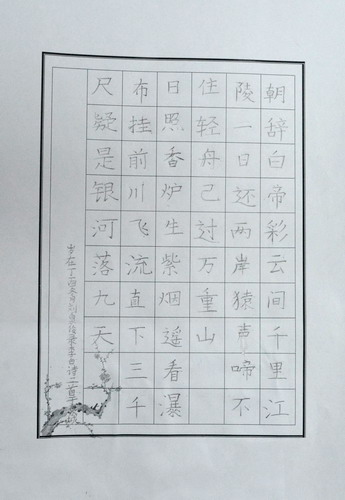 朝辞白帝彩云间千里江
陵一日还两岸猿声啼不
住轻舟已过万重山
日照香炉生紫烟遥看瀑
布挂前川飞流直下三千
尺疑是银河落九天
岁在丁酉录李白诗二首